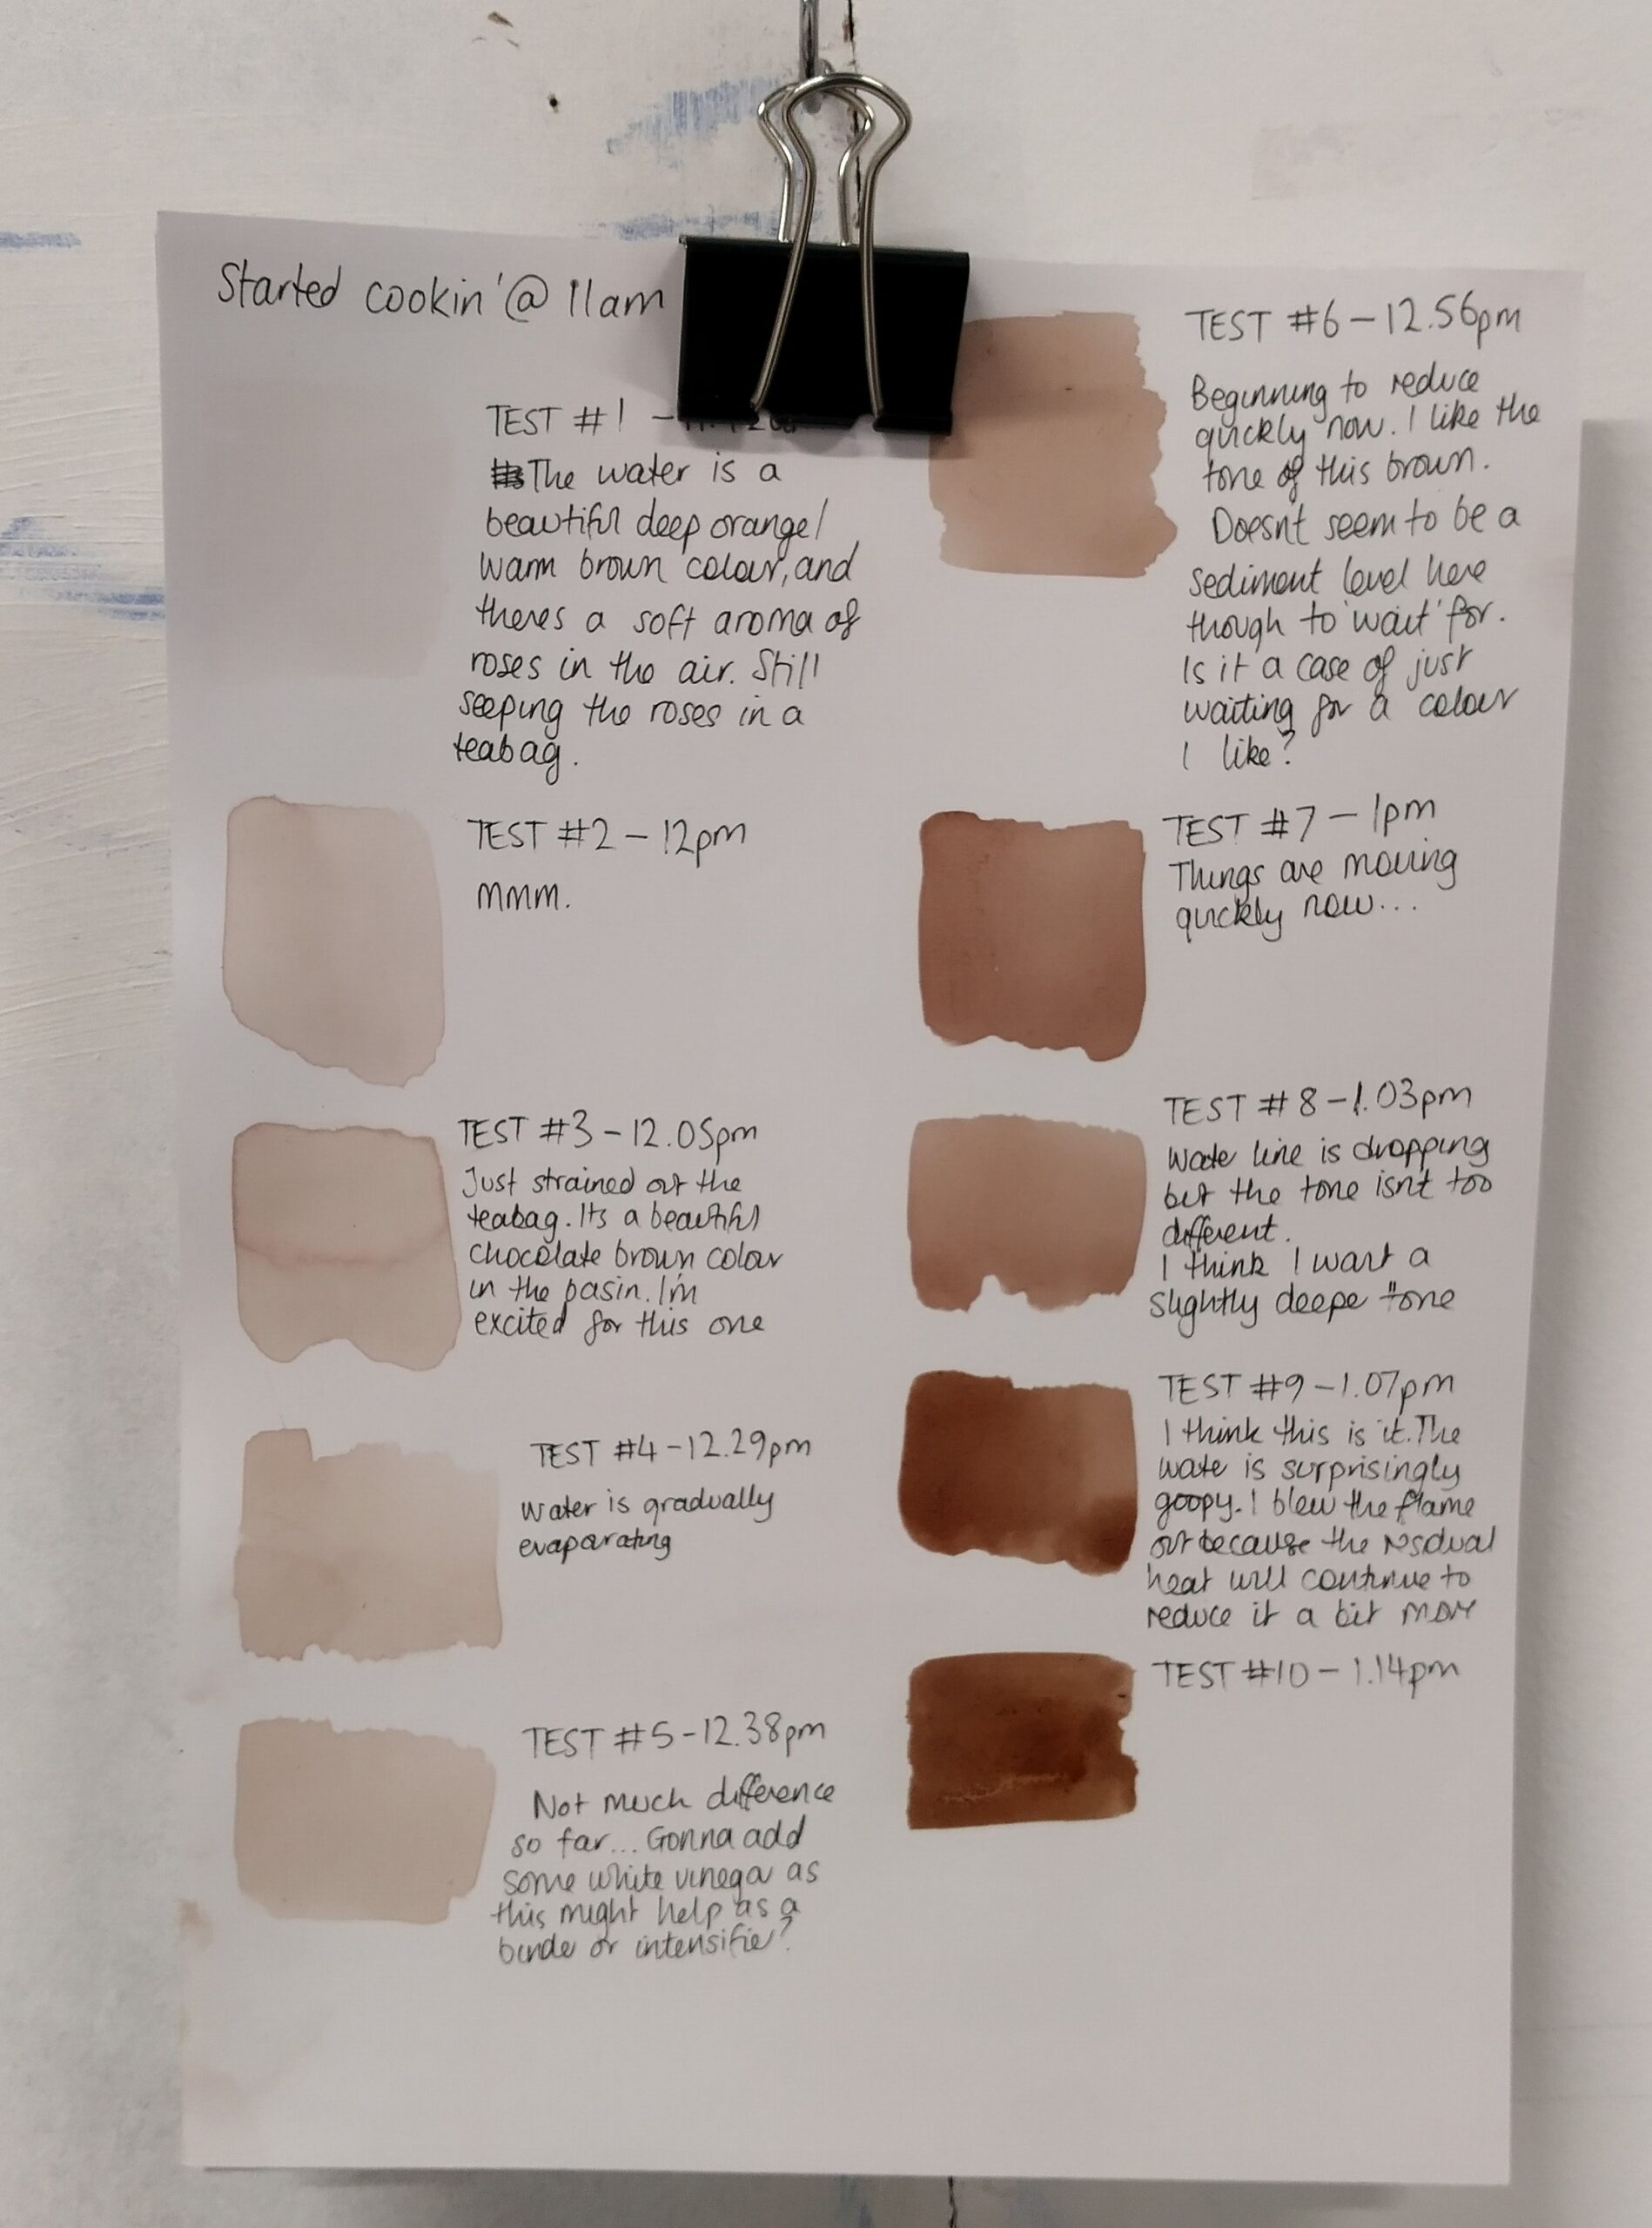 Started cookin' @ 11am
TEST #1 –
The water is a
beautiful deep orange/
warm brown colour, and
theres a soft aroma of
roses in the air. Still
seeping the roses in a
teabag.
TEST #2 – 12pm
mmm.
TEST #3 – 12.05pm
Just strained out the
teabag. Its a beautiful
chocolate brown colour
in the basin. I'm
excited for this one
TEST #4 – 12.29pm
Water is gradually
evaporating
TEST #5 – 12.38pm
Not much difference
so far... Gonna add
some white vinegar as
this might help as a
binder or intensifier?
TEST #6 – 12.56pm
Beginning to reduce
quickly now. I like the
tone of this brown.
Doesnt seem to be a
sediment level here
though to 'wait' for.
Is it a case of just
waiting for a colour
I like?
TEST #7 – 1pm
Things are moving
quickly now...
TEST #8 – 1.03pm
Water line is dropping
but the tone isnt too
different.
I think I want a
slightly deeper tone
TEST #9 – 1.07pm
I think this is it. The
water is surprisingly
goopy. I blew the flame
out because the residual
heat will continue to
reduce it a bit more
TEST #10 – 1.14pm